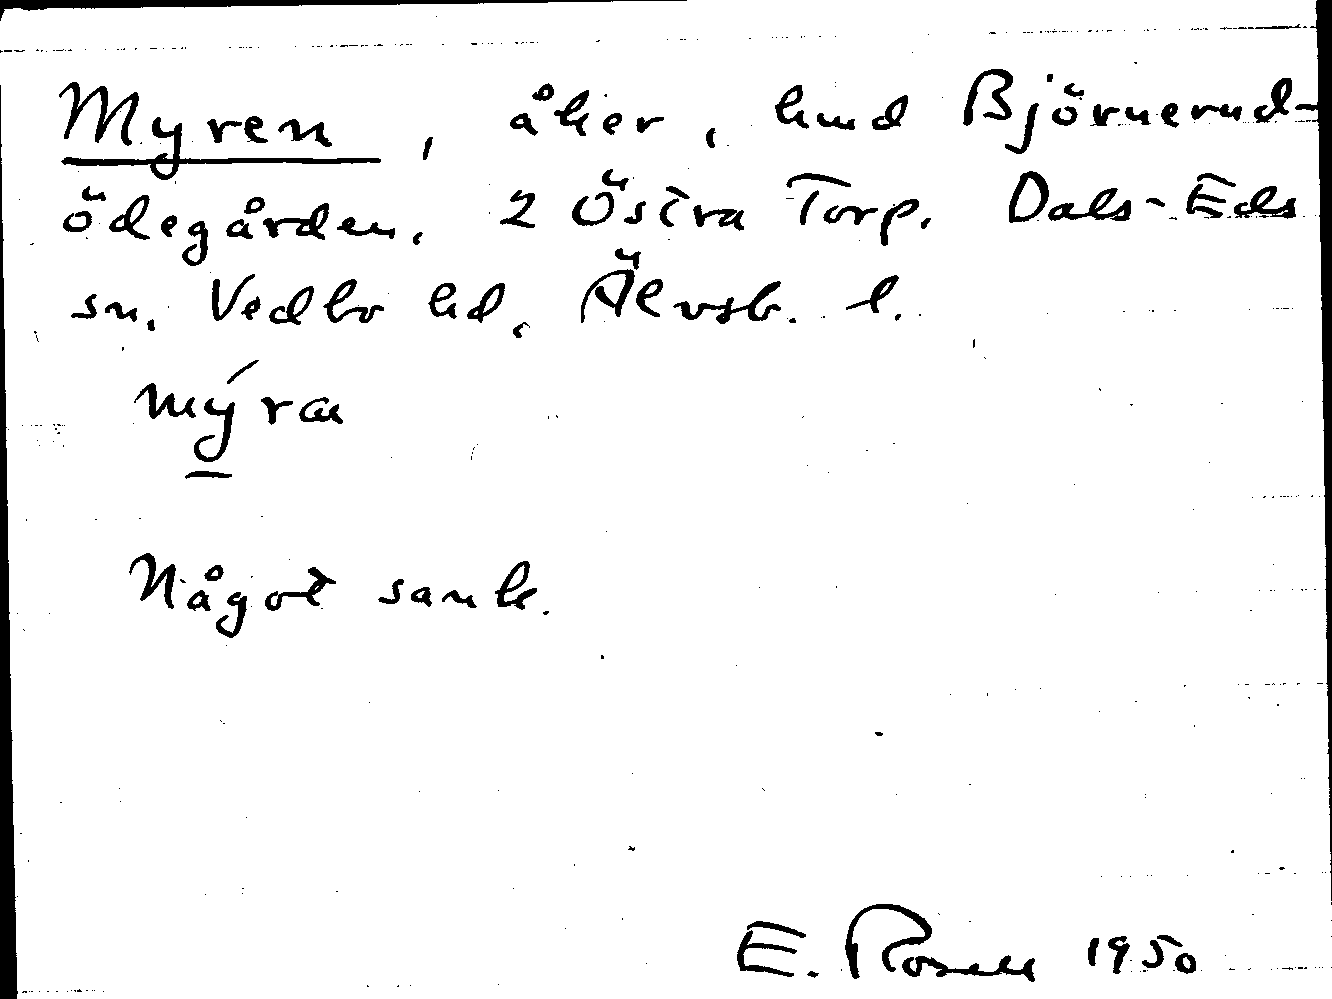 Myren, åker, hmd Björnerud-
ödegården, 2 Östra Torp. Dals-Eds
sn, Vedbo hd, Älvsb. l.
mýra
Något sank.
E. Rosell 1950